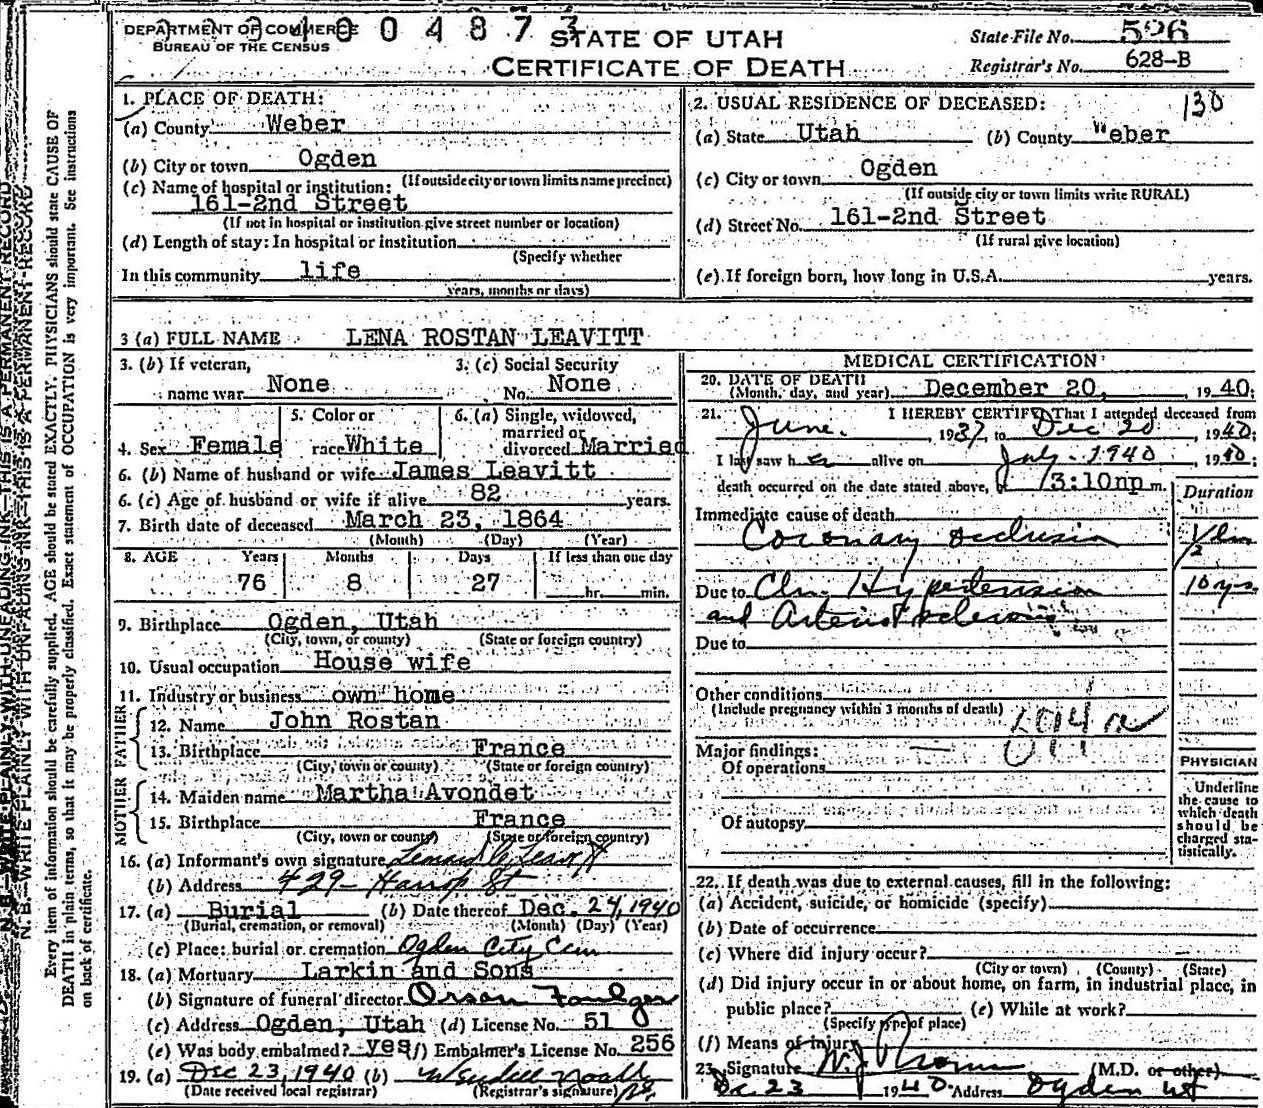 DEPARTMENT OF COMMERCE
BUREAU OF THE CENSUS
1004873
STATE OF UTAH
CERTIFICATE OF DEATH
State File No. 526
Registrar's No. 628-B
1. PLACE OF DEATH:
(a) County Weber
(b) City or town Ogden
(If outside city or town limits name precinct)
(c) Name of hospital or institution:
161-2nd Street
(If not in hospital or institution give street number or location)
(d) Length of stay: In hospital or institution
(Specify whether
In this community life
years, months or days)
2. USUAL RESIDENCE OF DECEASED: 130
(a) State Utah (b) County Weber
(c) City or town Ogden
(If outside city or town limits write RURAL)
(d) Street No. 161-2nd Street
(If rural give location)
(e) If foreign born, how long in U.S.A. years.
3 (a) FULL NAME LENA ROSTAN LEAVITT
3. (b) If veteran,
name war None
3. (c) Social Security
No. None
4. Sex Female
5. Color or
race White
6. (a) Single, widowed,
married or
divorced Married
6. (b) Name of husband or wife James Leavitt
6. (c) Age of husband or wife if alive 82 years.
7. Birth date of deceased March 23, 1864
(Month) (Day) (Year)
8. AGE Years Months Days If less than one day
76 8 27 hr. min.
9. Birthplace Ogden, Utah
(City, town, or county) (State or foreign country)
10. Usual occupation House wife
11. Industry or business own home
FATHER
12. Name John Rostan
13. Birthplace France
(City, town or county) (State or foreign country)
MOTHER
14. Maiden name Martha Avondet
15. Birthplace France
(City, town or county) (State or foreign country)
16. (a) Informant's own signature Leavitt
(b) Address 429- Harrop St
17. (a) Burial (b) Date thereof Dec. 24, 1940
(Burial, cremation, or removal) (Month) (Day) (Year)
(c) Place: burial or cremation Ogden City Cem
18. (a) Mortuary Larkin and Sons
(b) Signature of funeral director Orson Foulger
(c) Address Ogden, Utah (d) License No. 51
(e) Was body embalmed? yes (f) Embalmer's License No. 256
19. (a) Dec 23, 1940 (b)
(Date received local registrar) (Registrar's signature)
MEDICAL CERTIFICATION
20. DATE OF DEATH
(Month, day, and year) December 20, 1940;
21. I HEREBY CERTIFY That I attended deceased from
June, 1937, to Dec 20, 1940;
I last saw her alive on July - 1940, 1940;
death occurred on the date stated above, 3:10 pm.
Duration
Immediate cause of death
Coronary occlusion
Due to Chr. Hypertension 10 yrs.
and Arteriosclerosis
Due to
Other conditions
(Include pregnancy within 3 months of death)
Major findings:
Of operations
Of autopsy
PHYSICIAN
Underline
the cause to
which death
should be
charged sta-
tistically.
22. If death was due to external causes, fill in the following:
(a) Accident, suicide, or homicide (specify)
(b) Date of occurrence
(c) Where did injury occur?
(City or town) (County) (State)
(d) Did injury occur in or about home, on farm, in industrial place, in
public place? (e) While at work?
(Specify type of place)
(f) Means of injury
23. Signature (M.D. or other)
Dec. 23 1940. Address Ogden Ut
N. B.-WRITE PLAINLY WITH UNFADING INK-THIS IS A PERMANENT RECORD
Every item of information should be carefully supplied. AGE should be stated EXACTLY. PHYSICIANS should state CAUSE OF
DEATH in plain terms, so that it may be properly classified. Exact statement of OCCUPATION is very important. See instructions
on back of certificate.